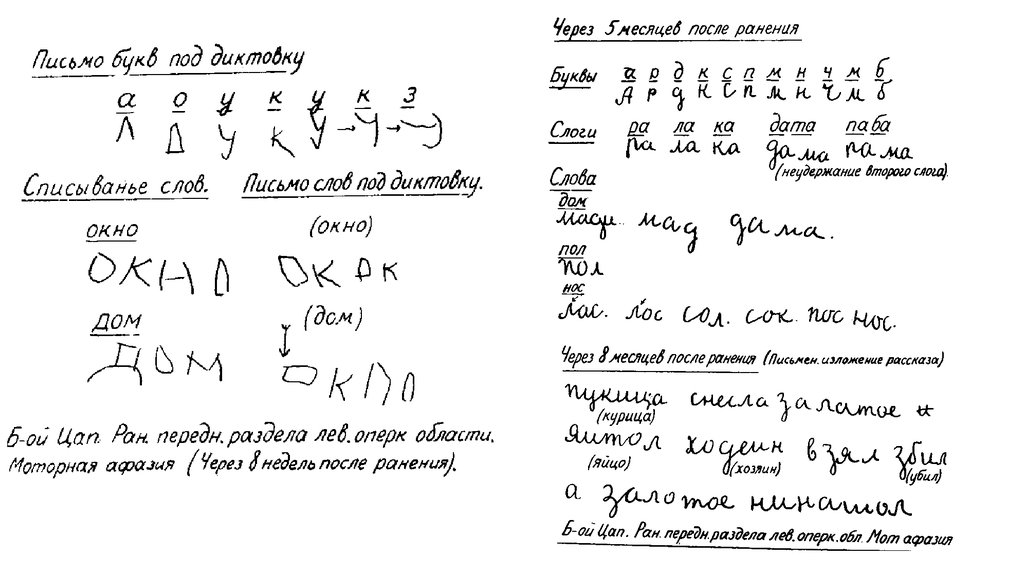 Письмо букв под диктовку
а о у к у к з
Л D У К У → Ч →
Списыванье слов. Письмо слов под диктовку.
окно (окно)
ОКНО ОКОК
дом (дом)
ДОМ ОКПО
Б-ой Цап. Ран. передн. раздела лев. оперк области.
Моторная афазия (Через 8 недель после ранения).
Через 5 месяцев после ранения
Буквы а р д к с п м н ч м б
А р д К С п м н ч м б
Слоги ра ла ка дата паба
ра ла ка дама рама
(неудержание второго слога).
Слова
дом
мад дама.
пол
пол
нос
лас. лос сол. сок пос нос.
Через 8 месяцев после ранения (Письмен. изложение рассказа)
пукица снесла залатое
(курица)
яитол ходеин взял збил
(яйцо) (хозяин) (убил)
а залотое нинатол
Б-ой Цап. Ран. передн. раздела лев. оперк. обл. Мот афазия